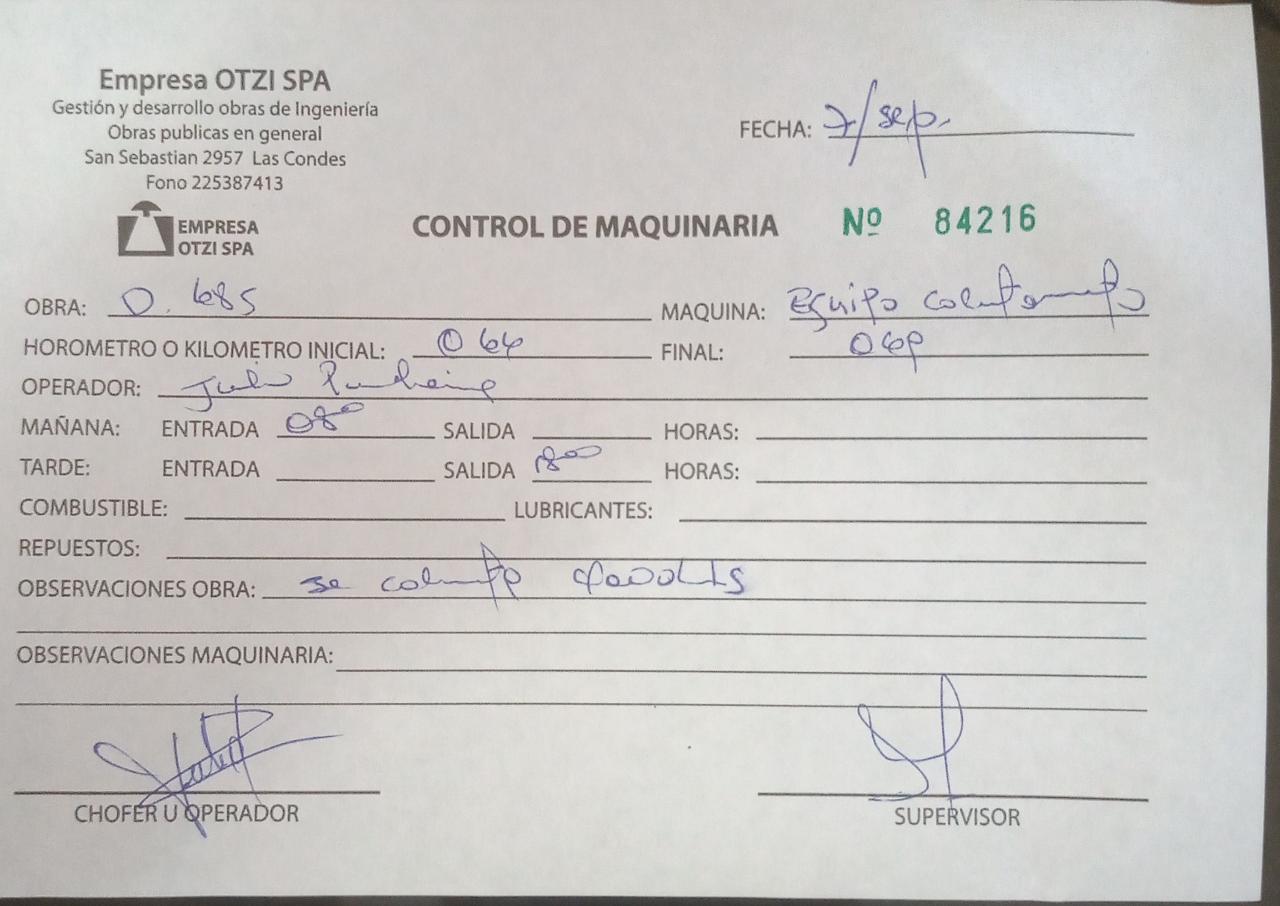 Empresa OTZI SPA
Gestión y desarrollo obras de Ingeniería
Obras publicas en general
San Sebastian 2957 Las Condes
Fono 225387413
FECHA: 7/sep.
EMPRESA
OTZI SPA
CONTROL DE MAQUINARIA Nº 84216
OBRA: D. 685 MAQUINA: Equipo
HOROMETRO O KILOMETRO INICIAL: FINAL:
OPERADOR: Julio
MAÑANA: ENTRADA 08⁰⁰ SALIDA HORAS:
TARDE: ENTRADA SALIDA 18⁰⁰ HORAS:
COMBUSTIBLE: LUBRICANTES:
REPUESTOS:
OBSERVACIONES OBRA: se
OBSERVACIONES MAQUINARIA:
CHOFER U OPERADOR SUPERVISOR